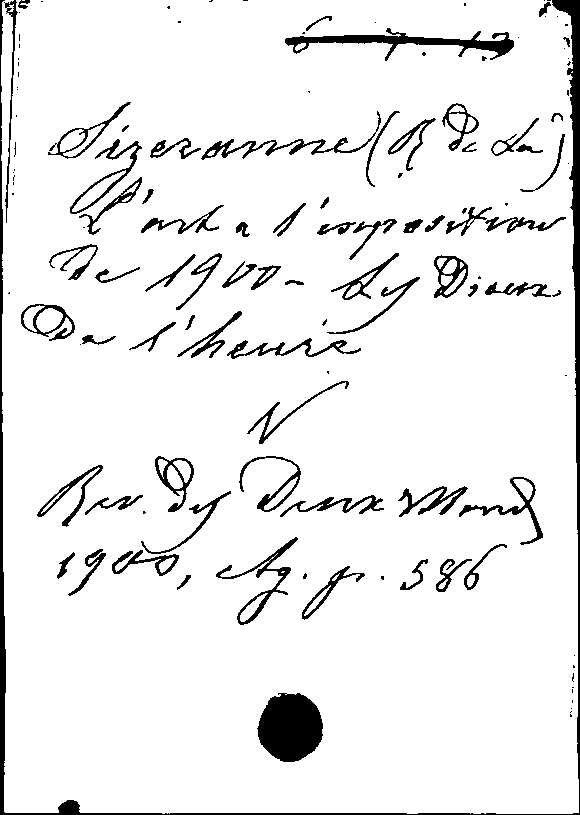 6 7. 13
Sizeranne (R de La)
L'art a l'exposition
de 1900 - Les Dieux
de l'heure
N
Rev. des Deux Mond
1900, Ag. p. 586